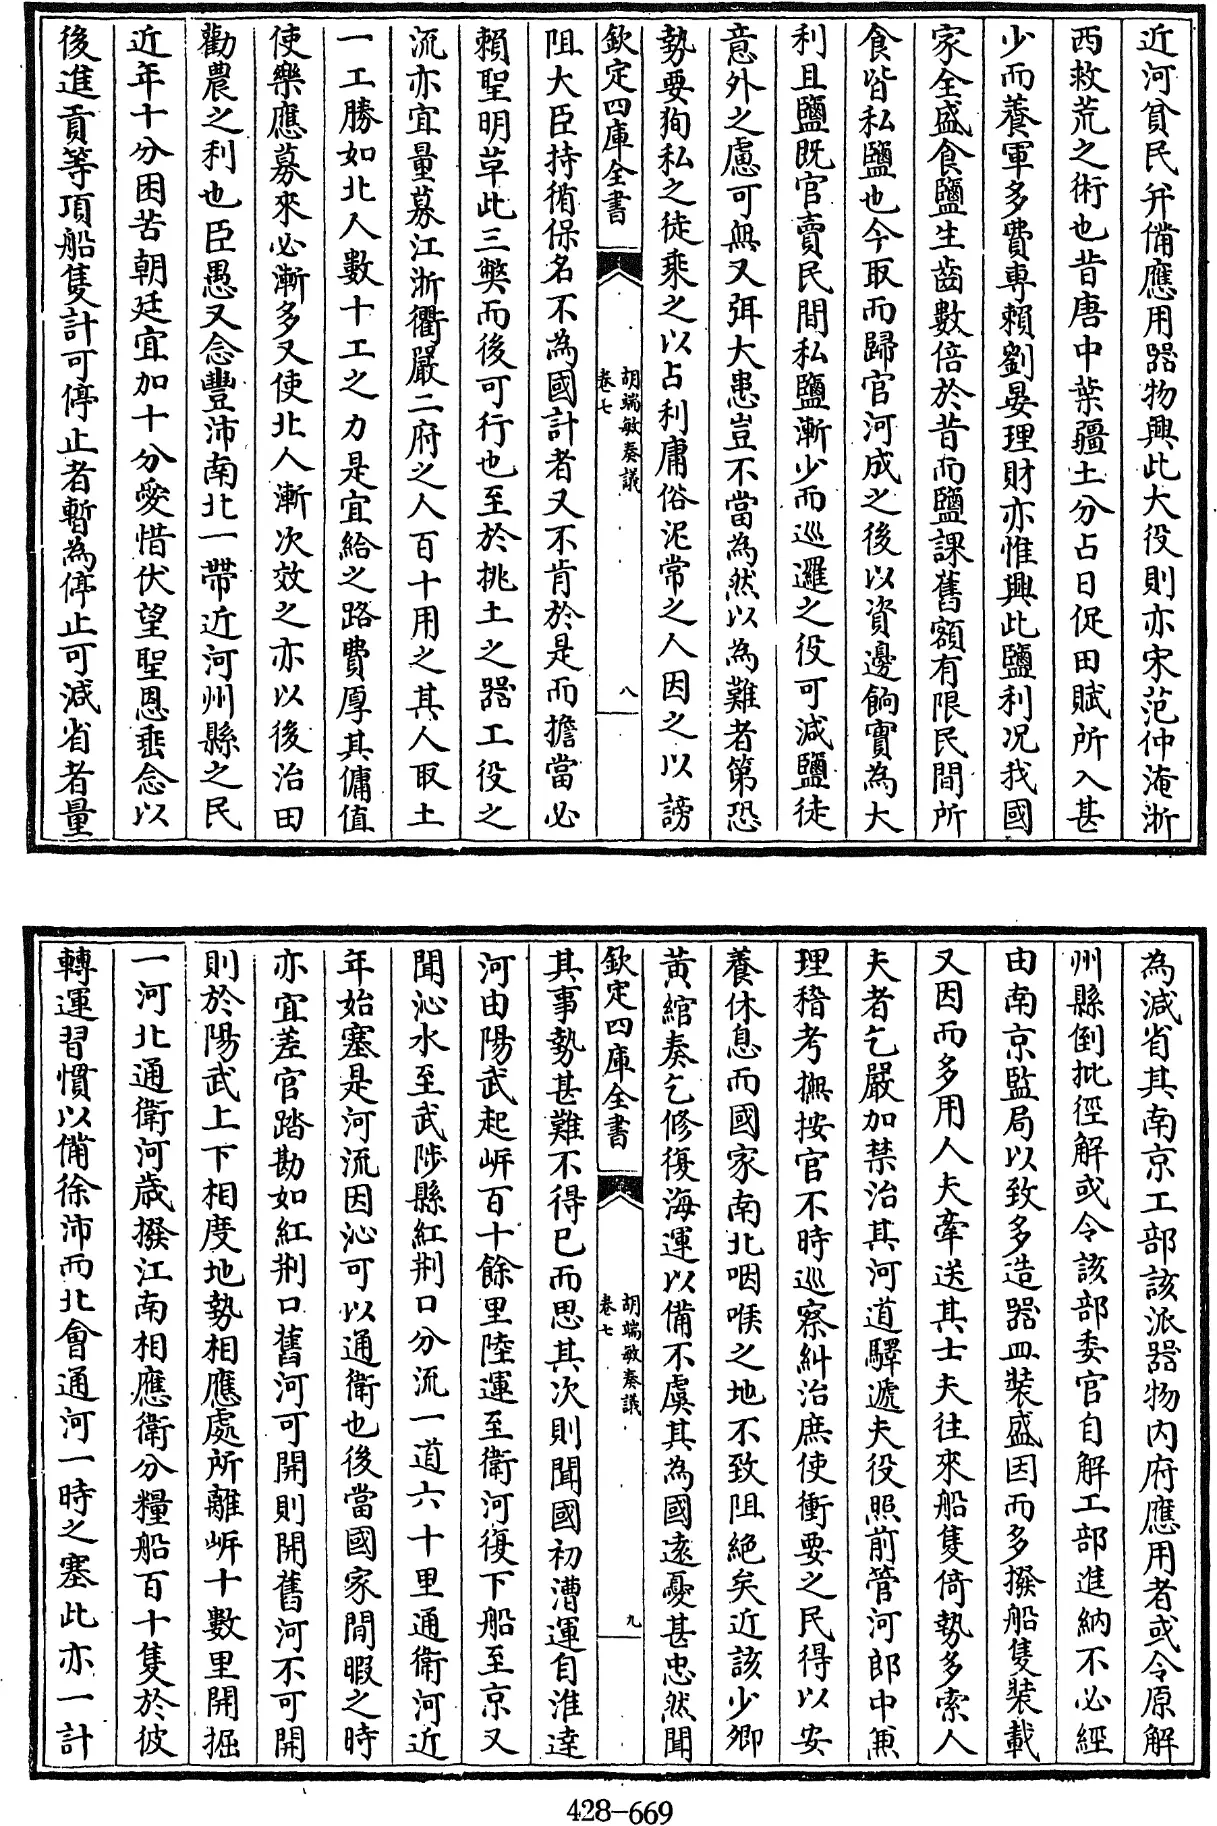 近河貧民并備應用器物興此大役則亦宋范仲淹浙
西救荒之術也昔唐中葉疆土分占日促田賦所入甚
少而養軍多費專賴劉晏理財亦惟興此鹽利况我國
家全盛食鹽生齒數倍於昔而鹽課舊額有限民間所
食皆私鹽也今取而歸官河成之後以資邊餉實為大
利且鹽既官賣民間私鹽漸少而巡邏之役可減鹽徒
意外之慮可無又弭大患豈不當為然以為難者第恐
勢要狥私之徒乘之以占利庸俗泥常之人因之以謗
欽定四庫全書
胡端敏奏議
卷七
八
阻大臣持循保名不為國計者又不肯於是而擔當必
賴聖明革此三弊而後可行也至於挑土之器工役之
流亦宜量募江浙衢嚴二府之人百十用之其人取土
一工勝如北人數十工之力是宜給之路費厚其傭值
使樂應募來必漸多又使北人漸次效之亦以後治田
勸農之利也臣愚又念豐沛南北一帶近河州縣之民
近年十分困苦朝廷宜加十分愛惜伏望聖恩垂念以
後進貢等項船隻計可停止者暫為停止可減省者量
為減省其南京工部該派器物内府應用者或令原解
州縣倒批徑解或令該部委官自解工部進納不必經
由南京監局以致多造器皿裝盛因而多撥船隻裝載
又因而多用人夫牽送其士夫往來船隻倚勢多索人
夫者乞嚴加禁治其河道驛遞夫役照前管河郎中兼
理稽考撫按官不時巡察糾治庶使衝要之民得以安
養休息而國家南北咽喉之地不致阻絶矣近該少卿
黄綰奏乞修復海運以備不虞其為國遠憂甚忠然聞
欽定四庫全書
胡端敏奏議
卷七
九
其事勢甚難不得已而思其次則聞國初漕運自淮達
河由陽武起㟁百十餘里陸運至衛河復下船至京又
聞沁水至武陟縣紅荆口分流一道六十里通衛河近
年始塞是河流因沁可以通衛也後當國家閒暇之時
亦宜差官踏勘如紅荆口舊河可開則開舊河不可開
則於陽武上下相度地勢相應處所離㟁十數里開掘
一河北通衛河歲撥江南相應衛分糧船百十隻於彼
轉運習慣以備徐沛而北會通河一時之塞此亦一計
428-669